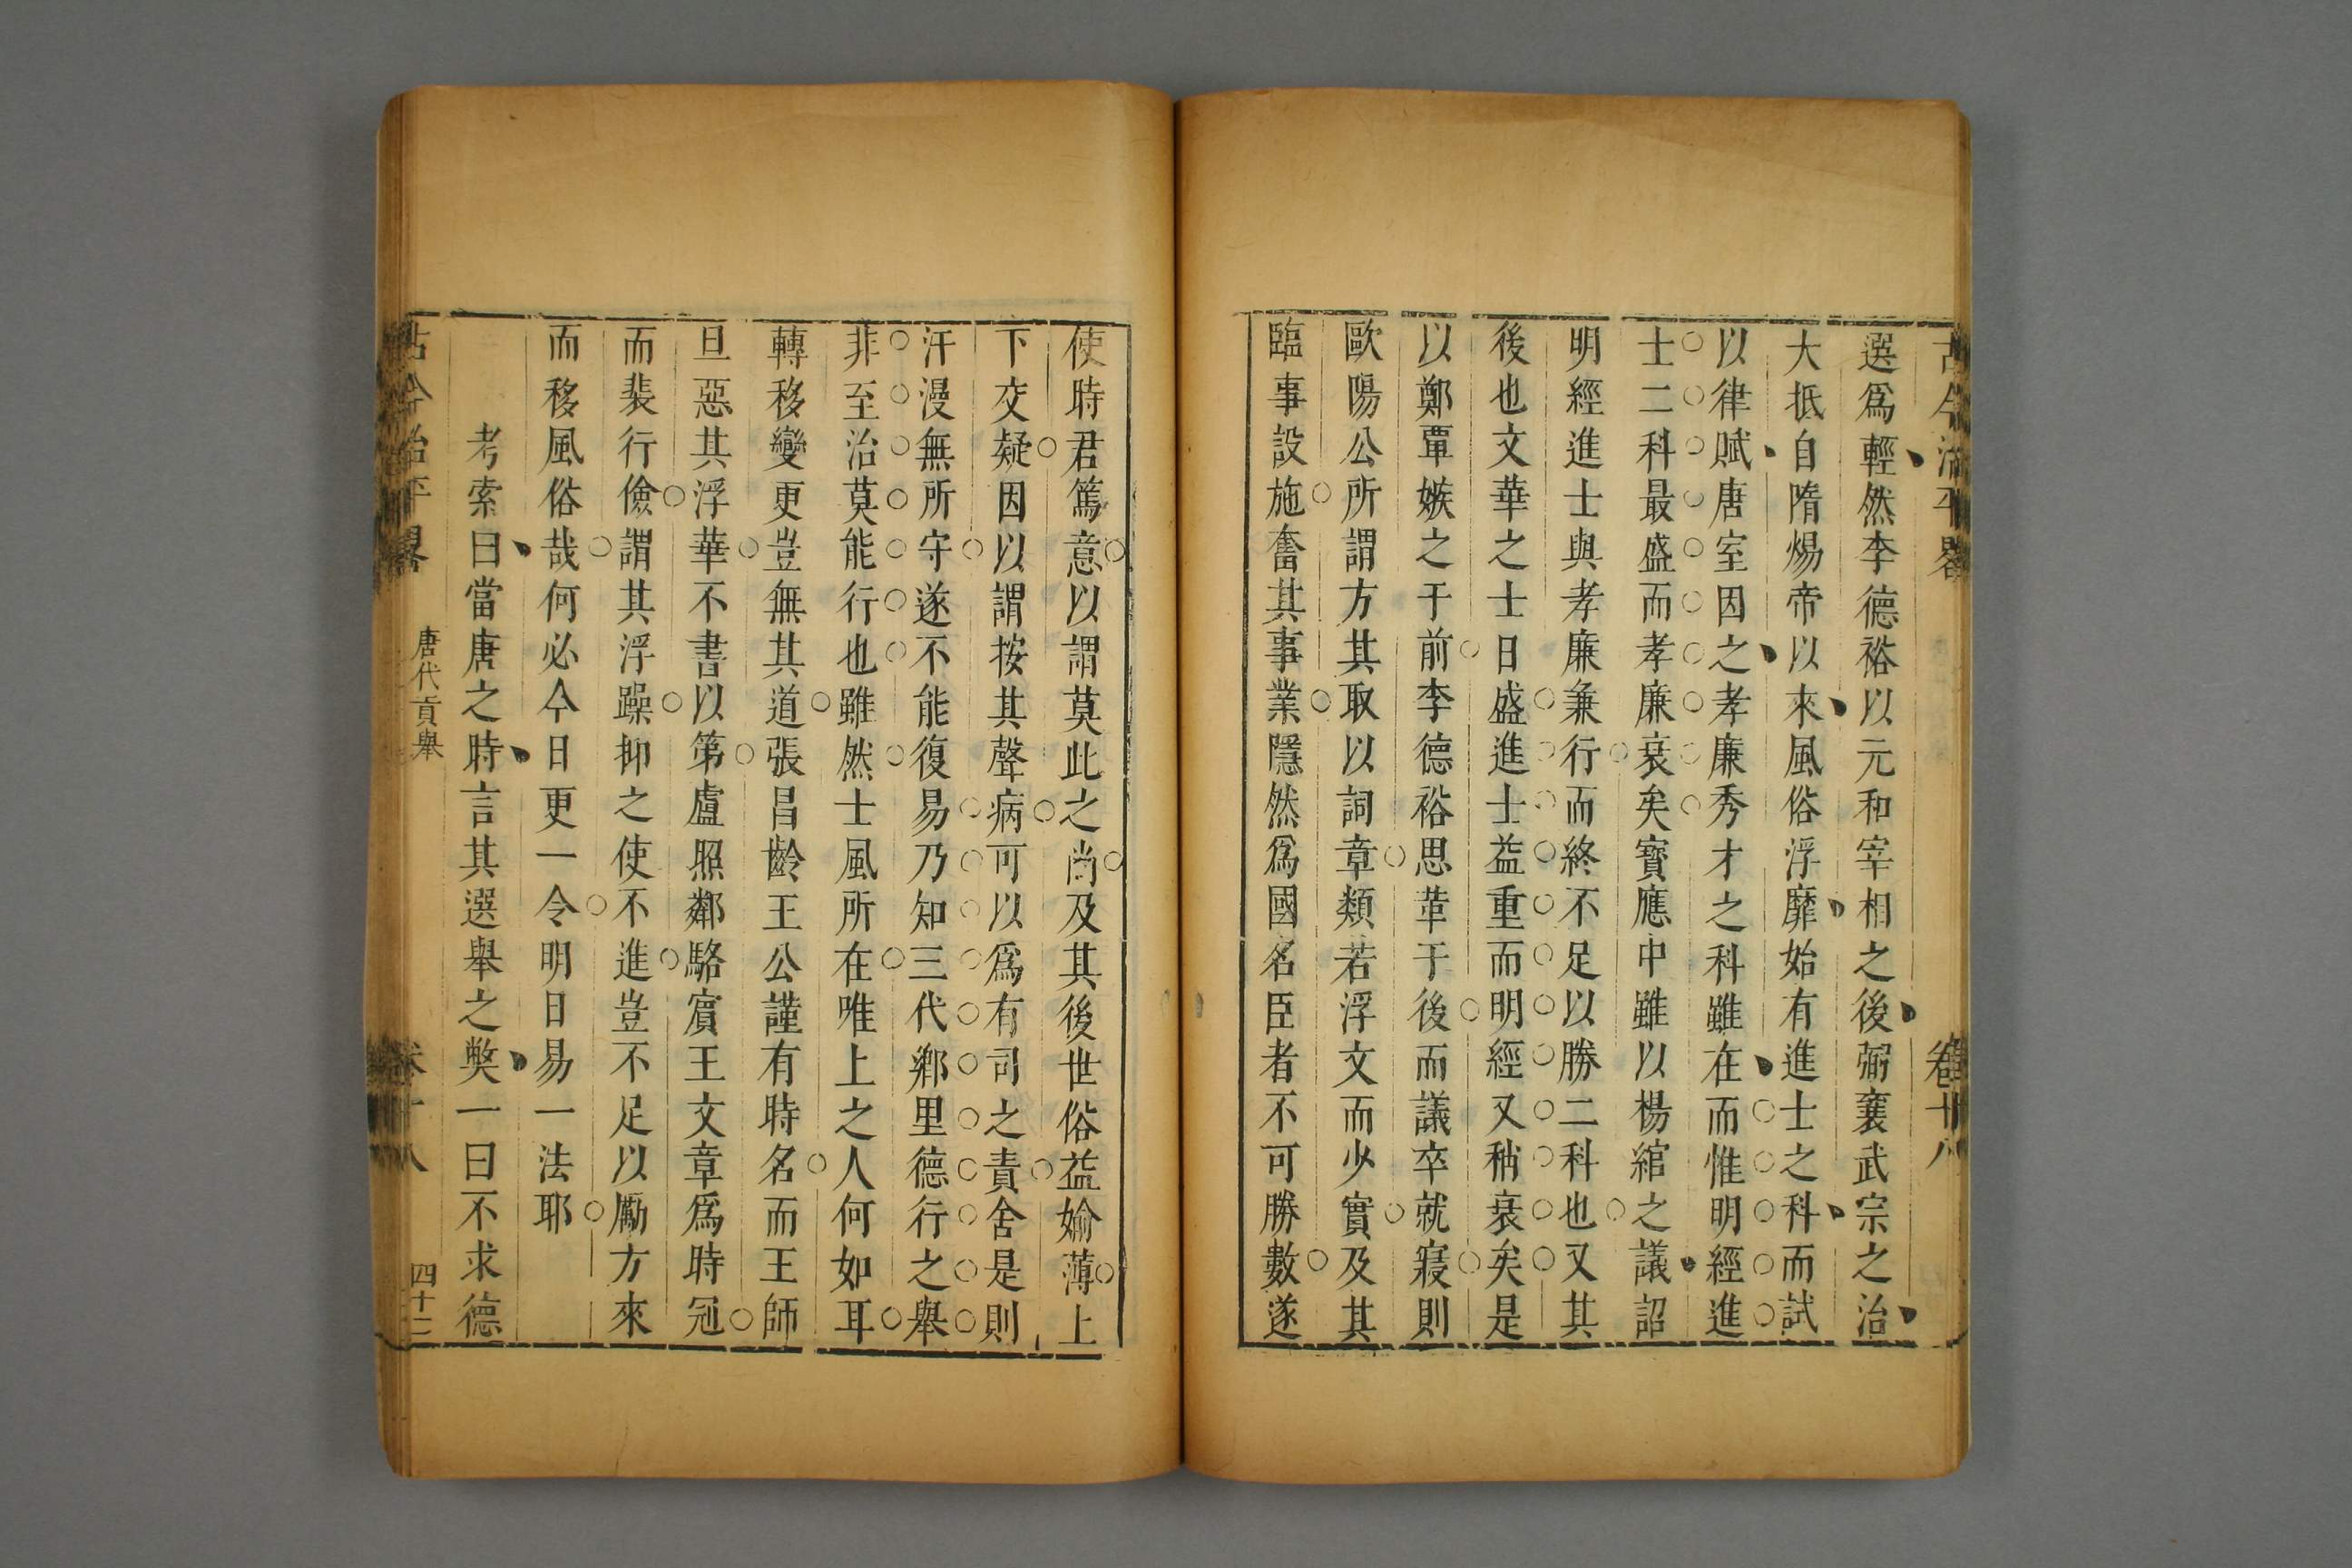 古今治平畧
卷十八
選爲輕然李德裕以元和宰相之後弼襄武宗之治
大抵自隋煬帝以來風俗浮靡始有進士之科而試
以律賦唐室因之孝廉秀才之科雖在而惟明經進
士二科最盛而孝廉衰矣寳應中雖以楊綰之議詔
明經進士與孝廉兼行而終不足以勝二科也又其
後也文華之士日盛進士益重而明經又稍衰矣是
以鄭覃嫉之于前李德裕思革于後而議卒就寢則
歐陽公所謂方其取以詞章類若浮文而少實及其
臨事設施奮其事業隱然爲國名臣者不可勝數遂
使時君篤意以謂莫此之尚及其後世俗益媮薄上
下交疑因以謂按其聲病可以爲有司之責舍是則
汗漫無所守遂不能復易乃知三代鄕里德行之舉
非至治莫能行也雖然士風所在唯上之人何如耳
轉移變更豈無其道張昌齡王公謹有時名而王師
旦惡其浮華不書以第盧照鄰駱賔王文章爲時冠
而裴行儉謂其浮躁抑之使不進豈不足以勵方來
而移風俗哉何必今日更一令明日易一法耶
考索曰當唐之時言其選舉之獘一曰不求德
古今治平畧
唐代貢舉
卷十八
四十二